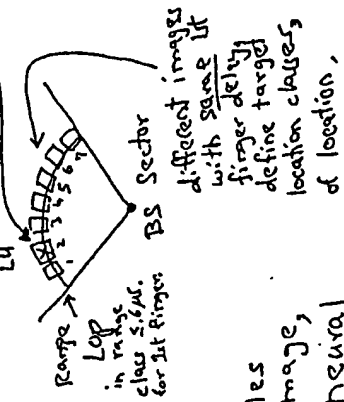 L4
Range
LOP
in range
class 5.6 µs.
for 1st finger.
1 2 3 4 5 6 7
BS Sector
different images
with same 1st
finger delay,
define target
location classes,
of location.
les
mage,
neural